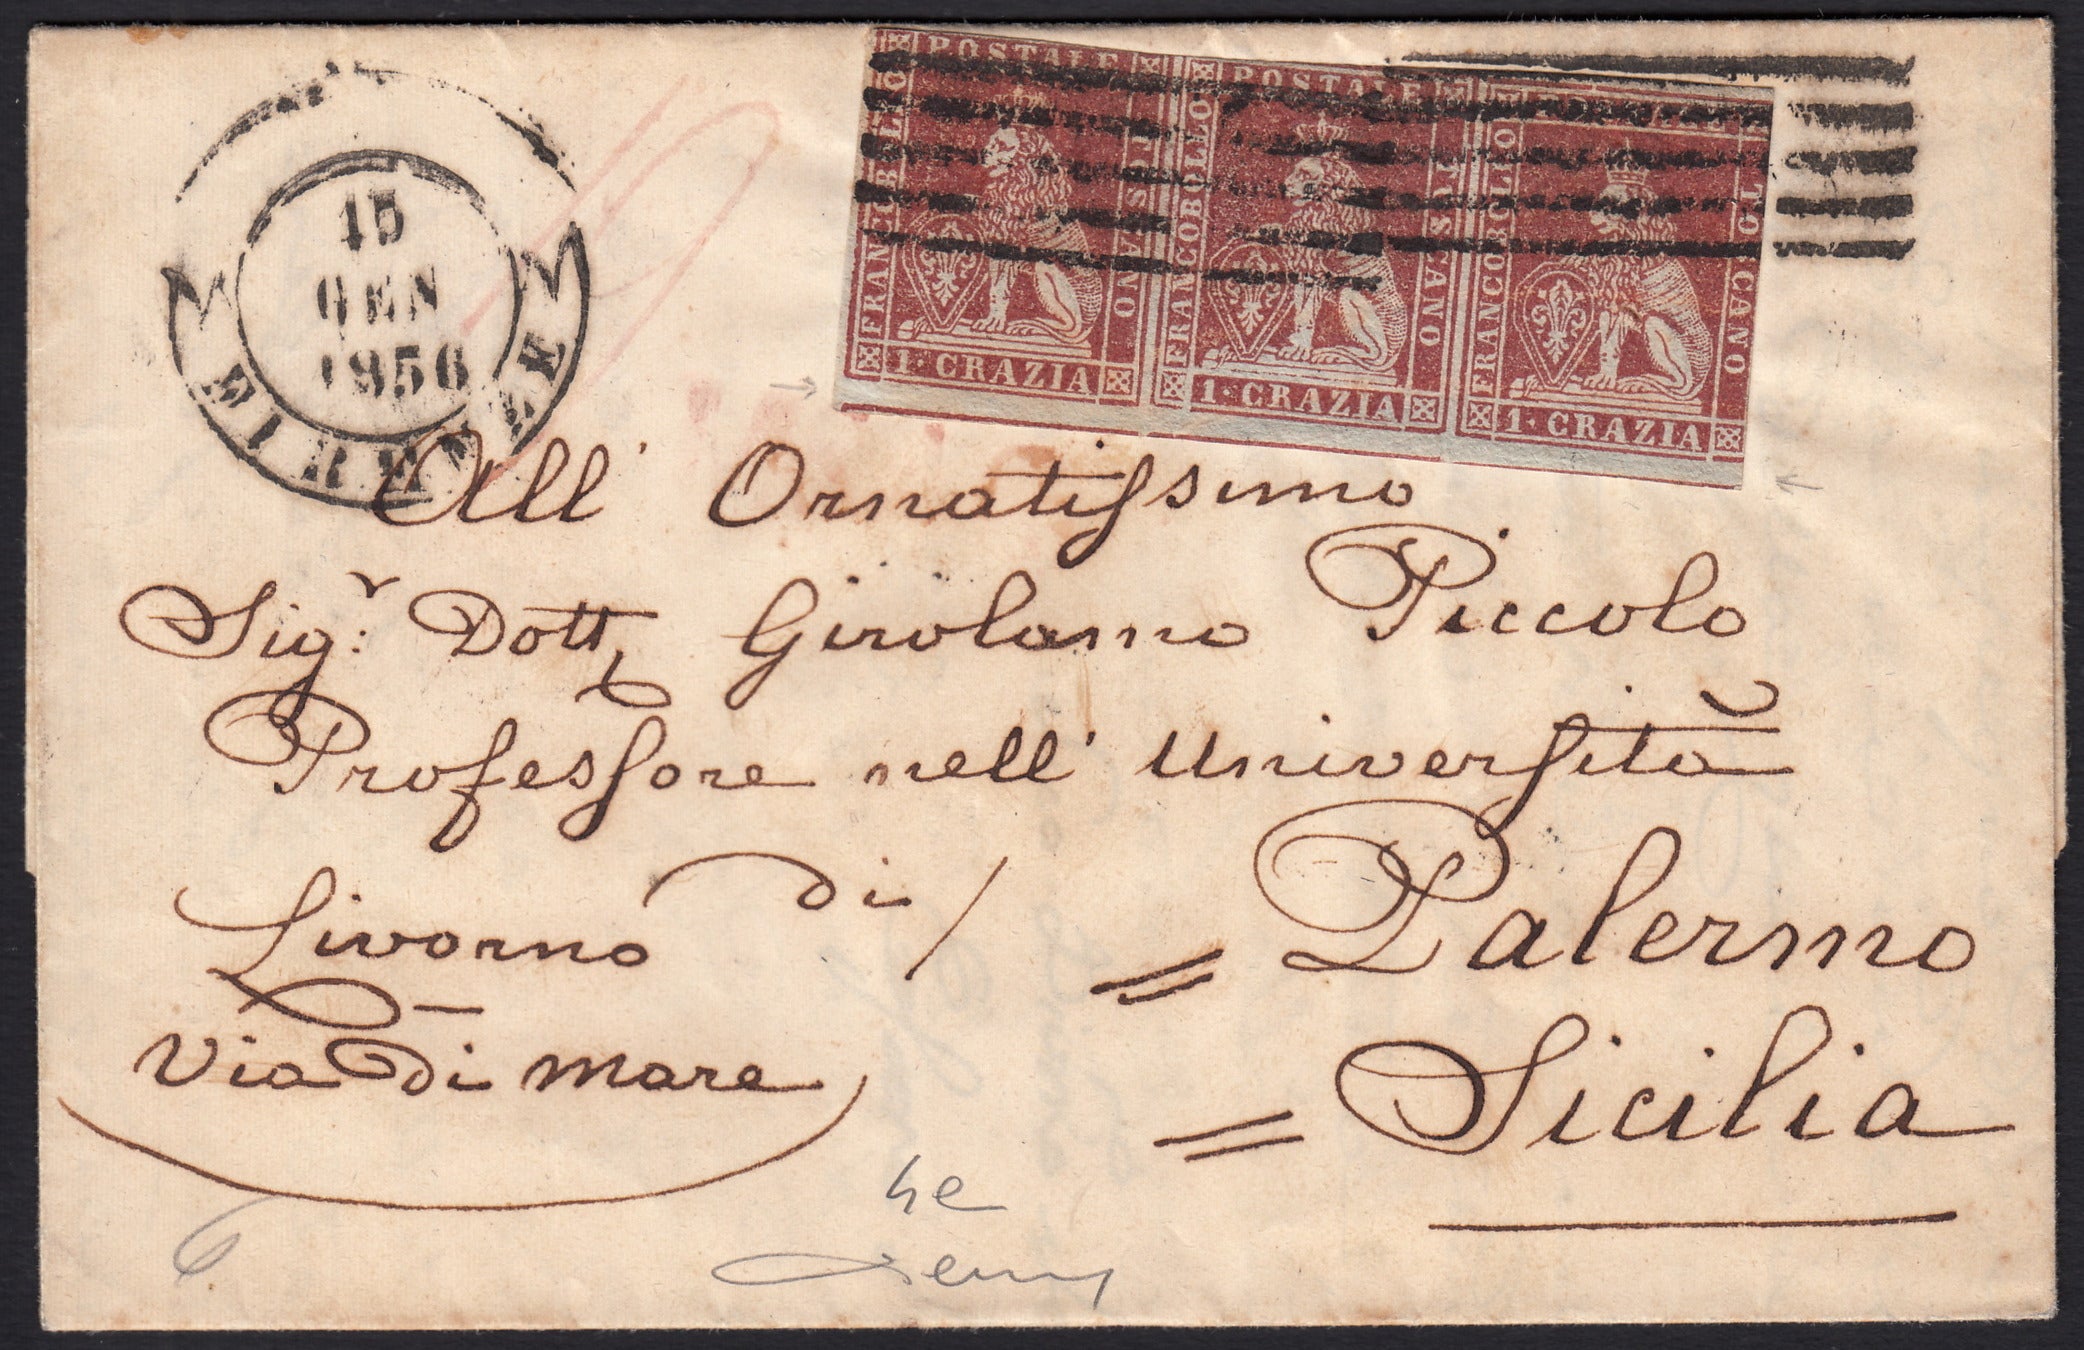 15
GEN
1856
FIRENZE
FRANCOBOLLO POSTALE TOSCANO
1 CRAZIA
FRANCOBOLLO POSTALE TOSCANO
1 CRAZIA
FRANCOBOLLO POSTALE TOSCANO
1 CRAZIA
All' Ornatissimo
Sigr: Dott Girolamo Piccolo
Professore nell' Università
di / = Palermo
Livorno
Via di mare
= Sicilia